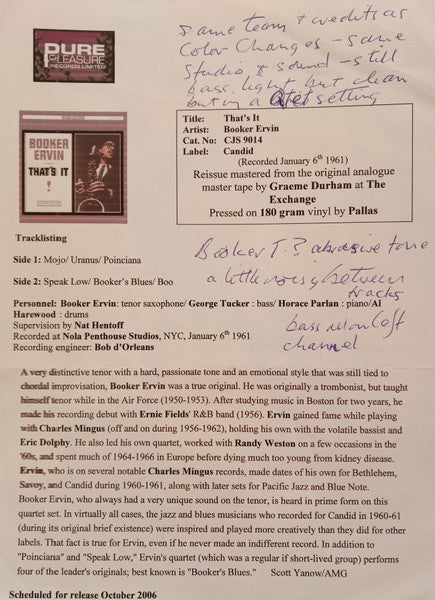 PURE
PLEASURE
RECORDS LIMITED
same team + credits as
Color Changes - same
studio & sound - still
bass light but clean
but in a 4tet setting
BOOKER
ERVIN
THAT'S IT
!
Title: That's It
Artist: Booker Ervin
Cat. No: CJS 9014
Label: Candid
(Recorded January 6th 1961)
Reissue mastered from the original analogue
master tape by Graeme Durham at The
Exchange
Pressed on 180 gram vinyl by Pallas
Tracklisting
Side 1: Mojo/ Uranus/ Poinciana
Side 2: Speak Low/ Booker's Blues/ Boo
Booker T.? abrasive tone
a little noisy between
tracks
bass all on left
channel
Personnel: Booker Ervin: tenor saxophone/ George Tucker : bass/ Horace Parlan : piano/Al
Harewood : drums
Supervision by Nat Hentoff
Recorded at Nola Penthouse Studios, NYC, January 6th 1961
Recording engineer: Bob d'Orleans
A very distinctive tenor with a hard, passionate tone and an emotional style that was still tied to
chordal improvisation, Booker Ervin was a true original. He was originally a trombonist, but taught
himself tenor while in the Air Force (1950-1953). After studying music in Boston for two years, he
made his recording debut with Ernie Fields' R&B band (1956). Ervin gained fame while playing
with Charles Mingus (off and on during 1956-1962), holding his own with the volatile bassist and
Eric Dolphy. He also led his own quartet, worked with Randy Weston on a few occasions in the
'60s, and spent much of 1964-1966 in Europe before dying much too young from kidney disease.
Ervin, who is on several notable Charles Mingus records, made dates of his own for Bethlehem,
Savoy, and Candid during 1960-1961, along with later sets for Pacific Jazz and Blue Note.
Booker Ervin, who always had a very unique sound on the tenor, is heard in prime form on this
quartet set. In virtually all cases, the jazz and blues musicians who recorded for Candid in 1960-61
(during its original brief existence) were inspired and played more creatively than they did for other
labels. That fact is true for Ervin, even if he never made an indifferent record. In addition to
"Poinciana" and "Speak Low," Ervin's quartet (which was a regular if short-lived group) performs
four of the leader's originals; best known is "Booker's Blues." Scott Yanow/AMG
Scheduled for release October 2006